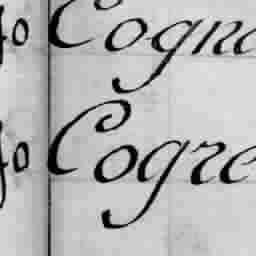 fo Cogna
fo Cogre